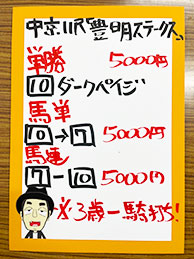 中京11R「豊明ステークス」
単勝 5000円
10 ダークペイジ
馬単
10→7 5000円
馬連
7-10 5000円
※3歳一騎打ち!